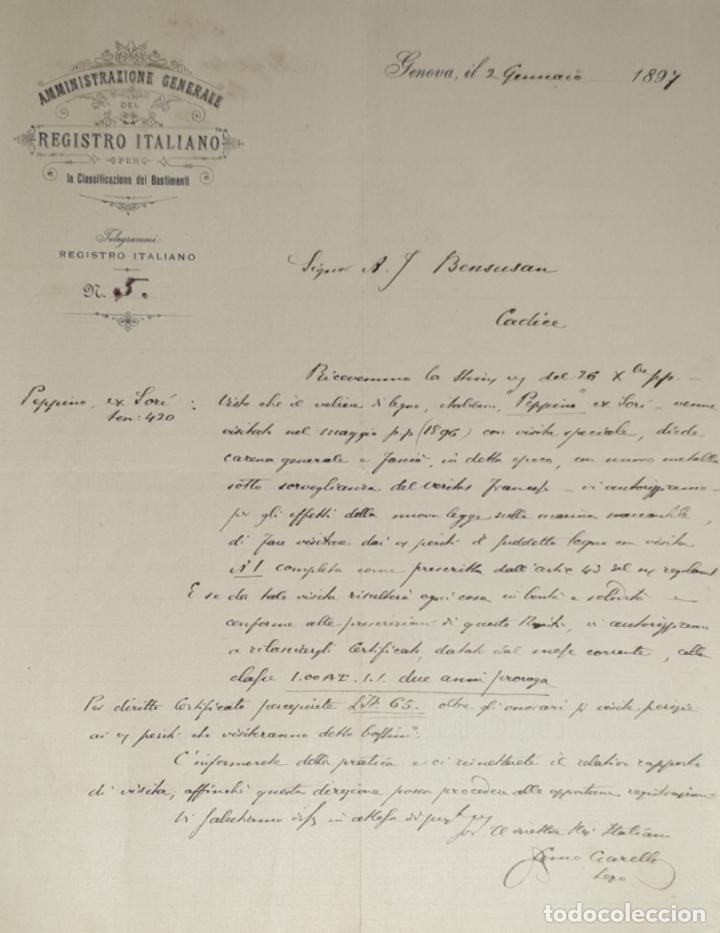 AMMINISTRAZIONE GENERALE
DEL
REGISTRO ITALIANO
PER
la Classificazione dei Bastimenti
Telegrammi:
REGISTRO ITALIANO
N. 5.
Genova, il 2 Gennaio 1897
Signor A. J Bensusan
Cadice
Peppino, ex Sori :
ton: 420
Ricevemmo la del 26 Xbre pp. —
Visto che il veliero di legno, italiano, "Peppino" ex Sori — venne
visitato nel maggio p.p (1896) con visita speciale, diede
carena generale e , in detta epoca, con nuovo metallo
sotto sorveglianza del Veritas Francese — vi autorizziamo —
per gli effetti della nuova legge sulla marina mercantile,
di fare visitare dai periti il suddetto legno con visita
N1 completa come prescritta dall' 43 del regolamt
E se da tale visita risulterà ogni cosa in bontà e solidità e
conforme alle prescrizioni di questo , vi autorizziamo
a rilasciargli Certificato, datato dal mese corrente, alla
classe 1.00 A I. 1.1. due anni proroga
Per diritto Certificato percepirete 65. oltre gli onorari
ai periti che visiteranno detto :
C'informerete della pratica e ci rimetterete il relativo rapporto
di visita, affinché questa direzione possa procedere alle opportune registrazioni
Vi salutiamo in attesa di
Il Italiano
todocoleccion